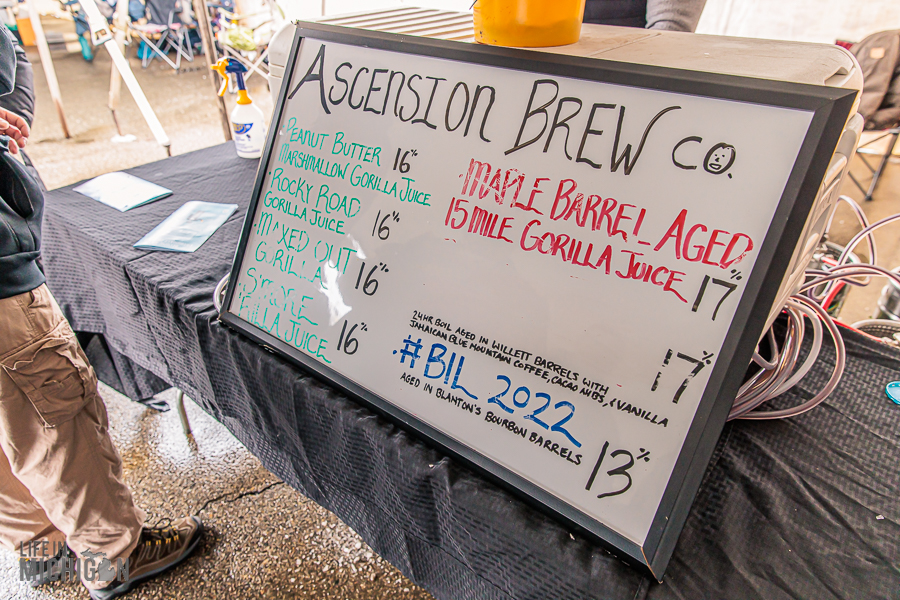 ASCENSION BREW CO.
PEANUT BUTTER
MARSHMALLOW GORILLA JUICE 16%
ROCKY ROAD
GORILLA JUICE 16%
MAXED OUT
GORILLA 16%
JUICE 16%
MAPLE BARREL AGED
15 MILE GORILLA JUICE 17%
24HR BOIL AGED IN WILLETT BARRELS WITH
JAMAICAN BLUE MOUNTAIN COFFEE, CACAO NIBS, & VANILLA 17%
#BIL 2022
AGED IN BLANTON'S BOURBON BARRELS 13%
LIFE IN
MICHIGAN